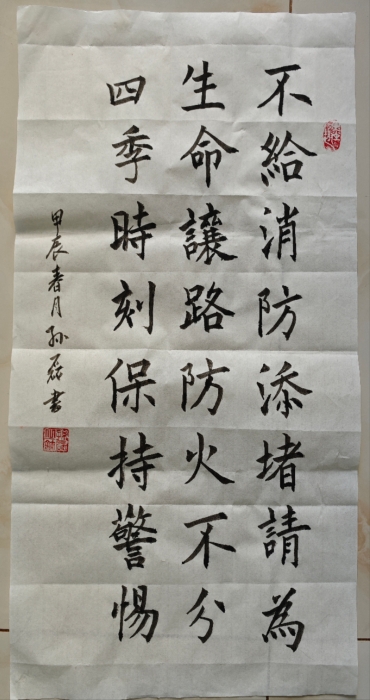 不給消防添堵請為
生命讓路防火不分
四季時刻保持警惕
甲辰春月孙磊書